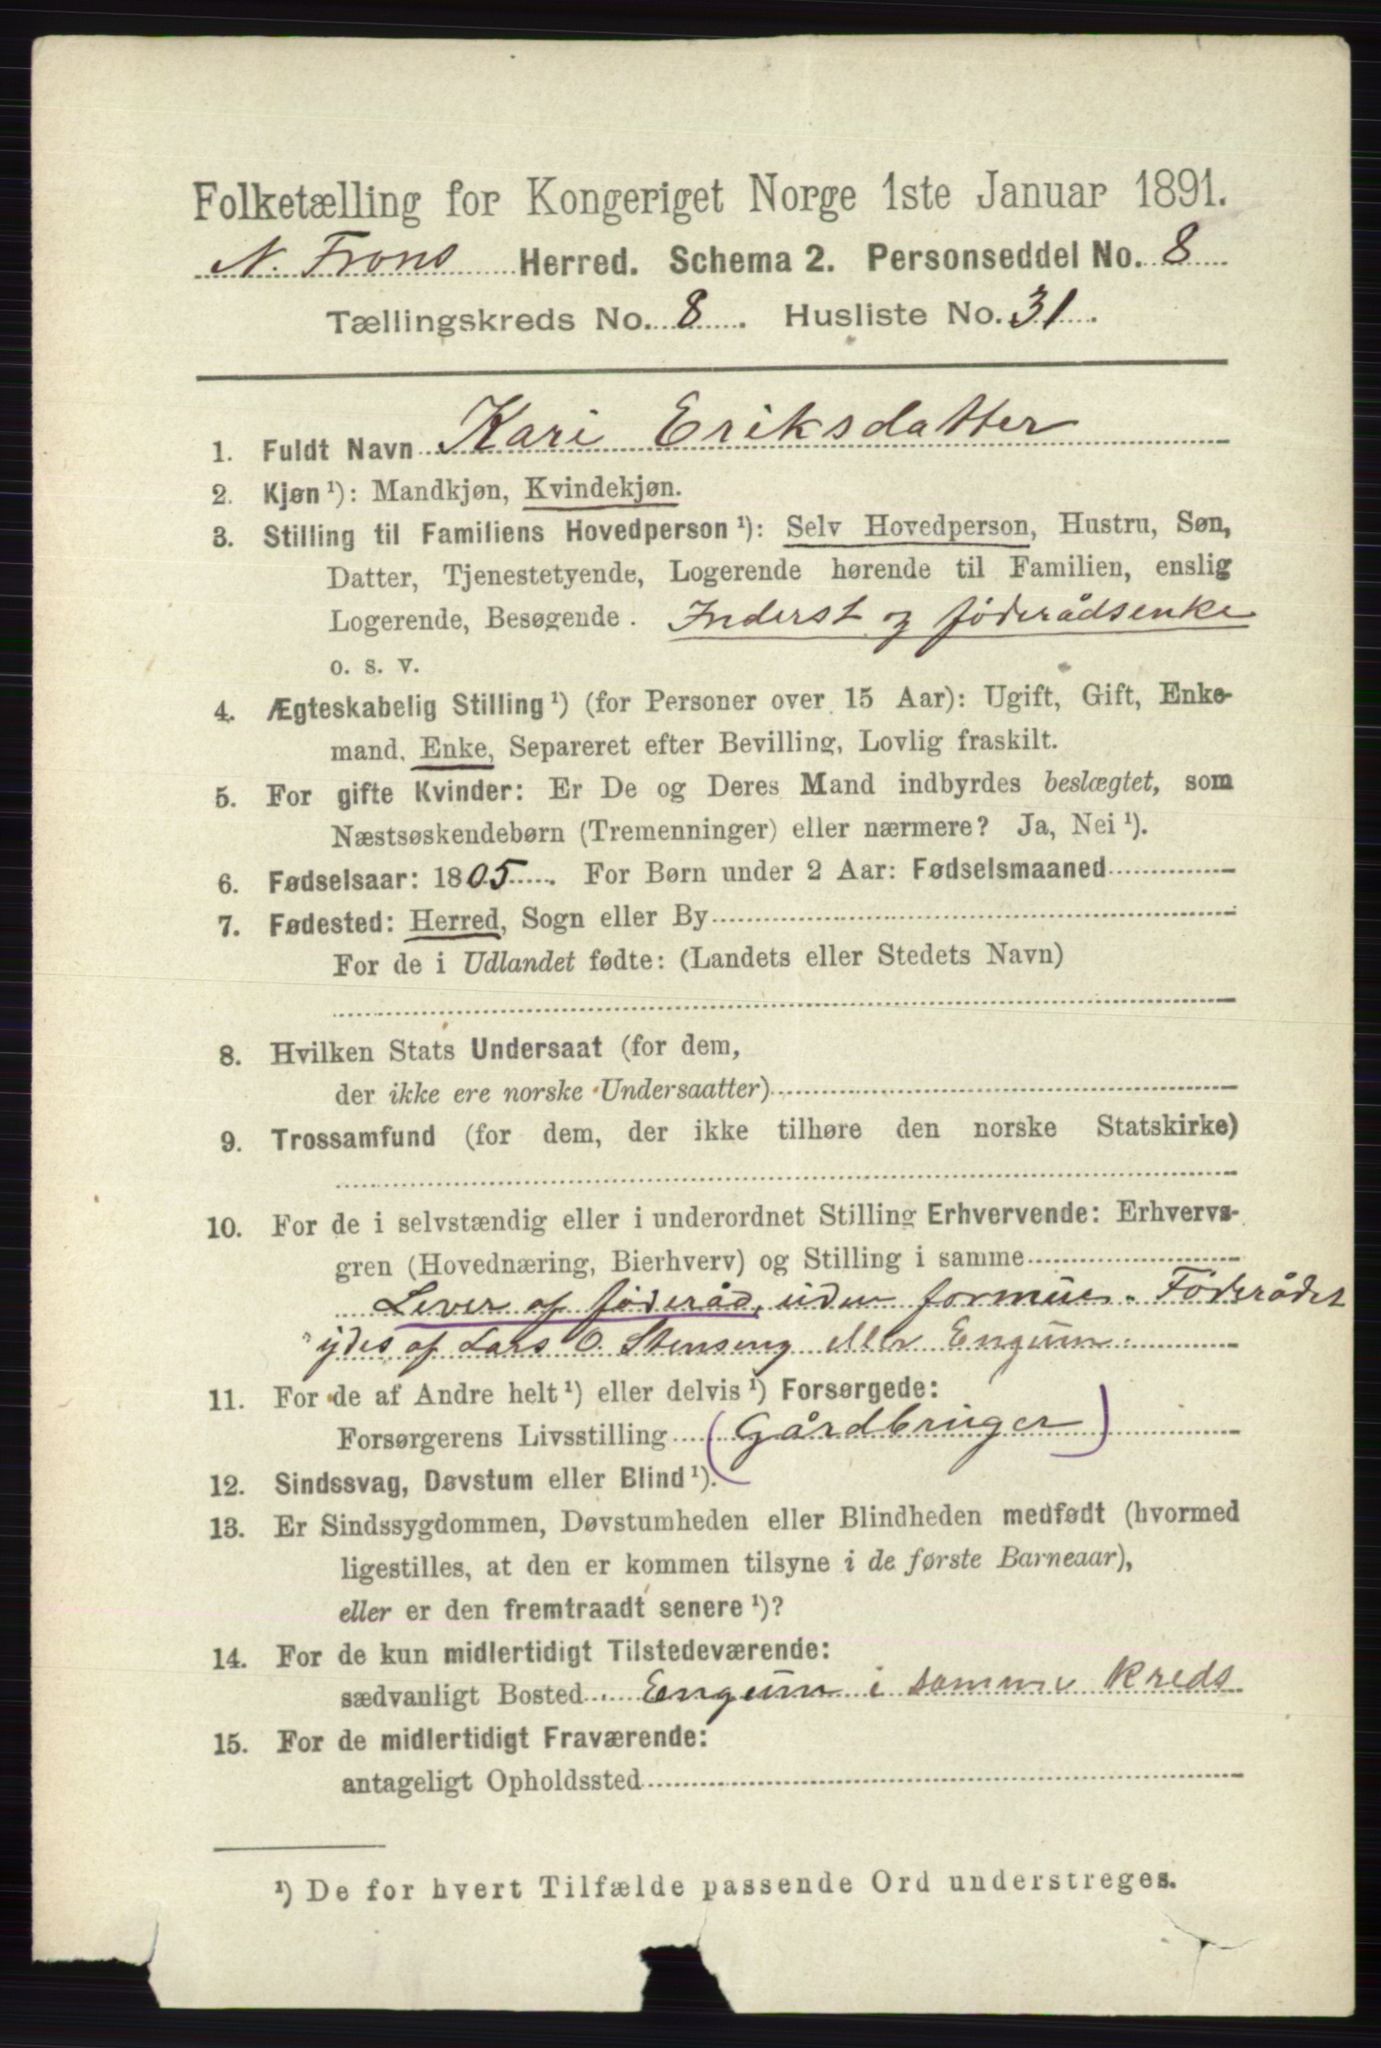 Folketælling for Kongeriget Norge 1ste Januar 1891.
N. Frons Herred. Schema 2. Personseddel No. 8
Tællingskreds No. 8. Husliste No. 31.
1. Fuldt Navn Kari Eriksdatter
2. Kjøn ¹): Mandkjøn, Kvindekjøn.
3. Stilling til Familiens Hovedperson ¹): Selv Hovedperson, Hustru, Søn,
Datter, Tjenestetyende, Logerende hørende til Familien, enslig
Logerende, Besøgende. Inderst og føderådsenke
o. s. v.
4. Ægteskabelig Stilling ¹) (for Personer over 15 Aar): Ugift, Gift, Enke-
mand, Enke, Separeret efter Bevilling, Lovlig fraskilt.
5. For gifte Kvinder: Er De og Deres Mand indbyrdes beslægtet, som
Næstsøskendebørn (Tremenninger) eller nærmere? Ja, Nei ¹).
6. Fødselsaar: 1805. For Børn under 2 Aar: Fødselsmaaned
7. Fødested: Herred, Sogn eller By
For de i Udlandet fødte: (Landets eller Stedets Navn)
8. Hvilken Stats Undersaat (for dem,
der ikke ere norske Undersaatter)
9. Trossamfund (for dem, der ikke tilhøre den norske Statskirke)
10. For de i selvstændig eller i underordnet Stilling Erhvervende: Erhvervs-
gren (Hovednæring, Bierhverv) og Stilling i samme
Lever af føderåd, uden formue. Föderådet
ydes af Lars O. Stenseng eller Engum.
11. For de af Andre helt ¹) eller delvis ¹) Forsørgede:
Forsørgerens Livsstilling (Gårdbruger)
12. Sindssvag, Døvstum eller Blind ¹).
13. Er Sindssygdommen, Døvstumheden eller Blindheden medfødt (hvormed
ligestilles, at den er kommen tilsyne i de første Barneaar),
eller er den fremtraadt senere ¹)?
14. For de kun midlertidigt Tilstedeværende:
sædvanligt Bosted Engum i samme kreds
15. For de midlertidigt Fraværende:
antageligt Opholdssted
¹) De for hvert Tilfælde passende Ord understreges.